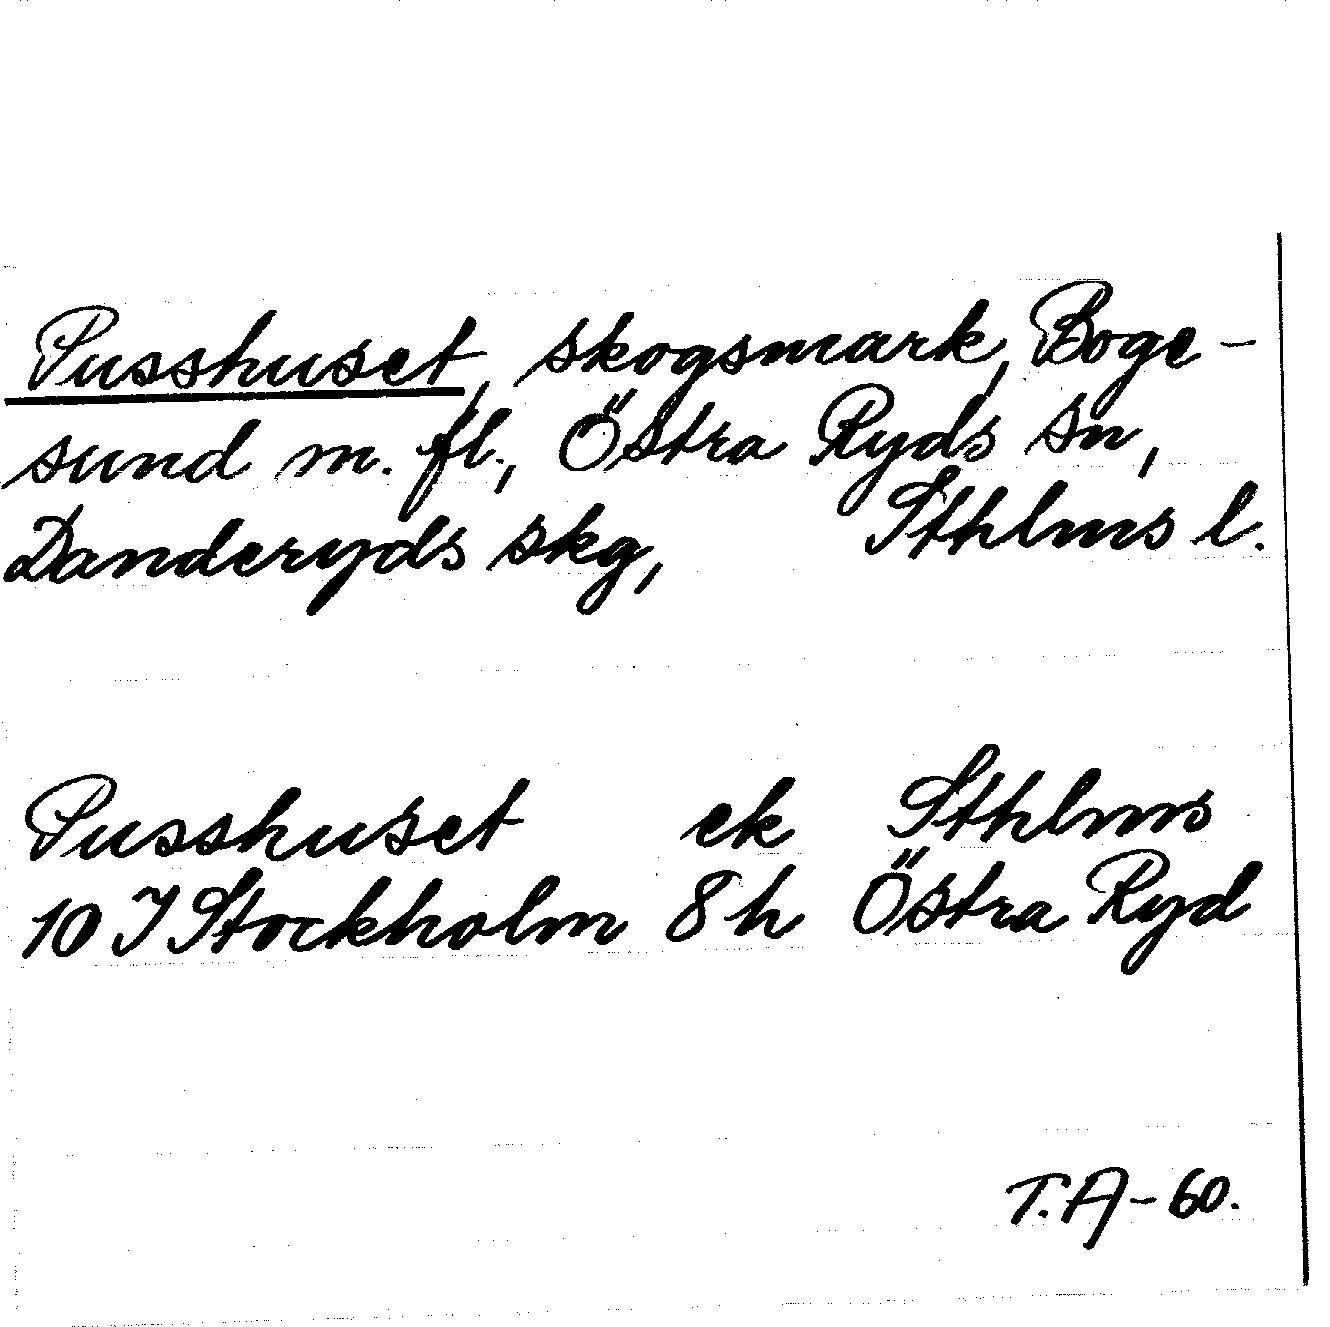 Pusshuset, skogsmark, Boge-
sund m. fl., Östra Ryds sn,
Danderyds skg, Sthlms l.
Pusshuset ek Sthlms
10 I Stockholm 8 h Östra Ryd
T.A-60.